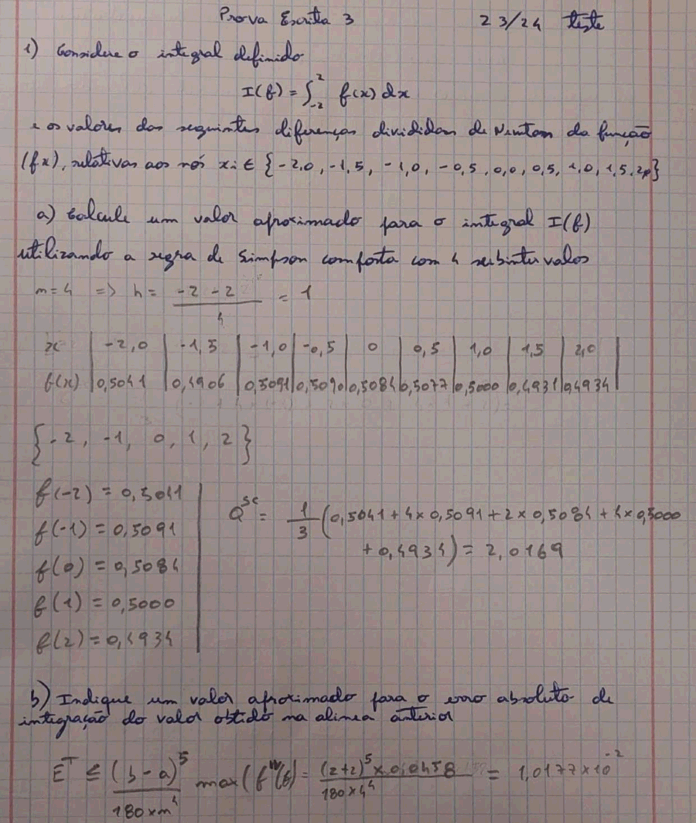 Prova Escrita 3 23/24 teste
1) Considere o integral definido
I(f) = ∫_{-2}^{2} f(x) dx
e os valores das seguintes diferenças divididas de Newton da função
(fx), relativas aos nós xi ∈ {-2,0, -1,5, -1,0, -0,5, 0,0, 0,5, 1,0, 1,5, 2,0}
a) Calcule um valor aproximado para o integral I(f)
utilizando a regra de Simpson composta com 4 subintervalos
m=4 => h = \frac{-2-2}{4} = 1
x | -2,0 | -1,5 | -1,0 | -0,5 | 0 | 0,5 | 1,0 | 1,5 | 2,0 |
f(x) | 0,5041 | 0,4906 | 0,5091 | 0,5090 | 0,5084 | 0,5077 | 0,5000 | 0,4931 | 0,4934 |
{-2, -1, 0, 1, 2}
f(-2) = 0,5041
f(-1) = 0,5091
f(0) = 0,5084
f(1) = 0,5000
f(2) = 0,4934
Q^{SC} = \frac{1}{3} (0,5041 + 4×0,5091 + 2×0,5084 + 4×0,5000
+ 0,4934) = 2,0169
b) Indique um valor aproximado para o erro absoluto de
integração do valor obtido na alinea anterior
E^T ≤ \frac{(b-a)^5}{180×m^4} max(f^{IV}(t)) = \frac{(2+2)^5 × 0,0458}{180×4^4} = 1,0177×10^{-2}